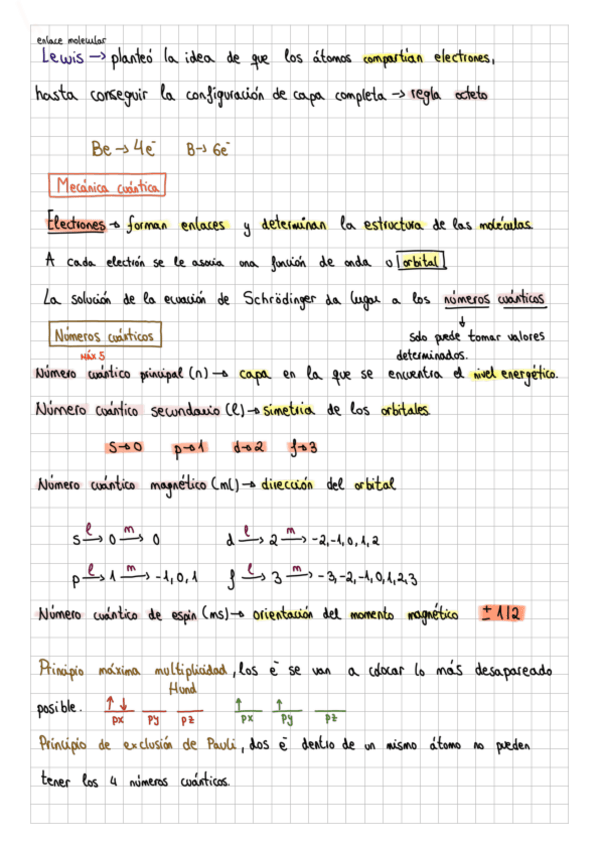 enlace molecular
Lewis → planteó la idea de que los átomos compartían electrones,
hasta conseguir la configuración de capa completa → regla octeto
Be → 4e⁻ B → 6e⁻
Mecánica cuántica
Electrones → forman enlaces y determinan la estructura de las moléculas.
A cada electrón se le asocia una función de onda u orbital.
La solución de la ecuación de Schrödinger da lugar a los números cuánticos
↓
Números cuánticos
solo puede tomar valores
determinados.
MÁX 5
Número cuántico principal (n) → capa en la que se encuentra el nivel energético.
Número cuántico secundario (l) → simetría de los orbitales
s→0 p→1 d→2 f→3
Número cuántico magnético (ml) → dirección del orbital
s l→ 0 m→ 0 d l→ 2 m→ -2,-1,0,1,2
p l→ 1 m→ -1,0,1 f l→ 3 m→ -3,-2,-1,0,1,2,3
Número cuántico de espín (ms) → orientación del momento magnético ± 1/2
Principio máxima multiplicidad, los e⁻ se van a colocar lo más desapareado
Hund
posible. ↑ ↓ ↑ ↑
px py pz px py pz
Principio de exclusión de Pauli, dos e⁻ dentro de un mismo átomo no pueden
tener los 4 números cuánticos.